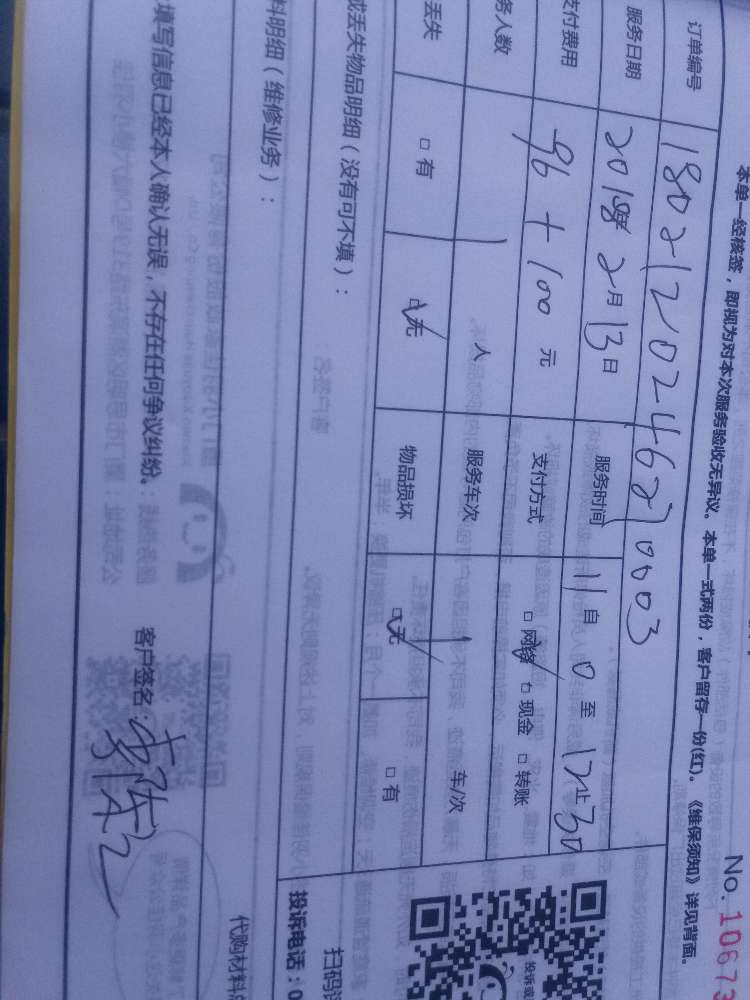 No. 10673
本单一经核签，即视为对本次服务验收无异议。本单一式两份，客户留存一份(红)。《维保须知》详见背面。
订单编号 180212024627 0003
服务日期 2018年 2月 13日 服务时间 11自 0 至 12止 30
支付费用 96 + 100 元 支付方式 □ 网络 □ 现金 □ 转账
务人数 1 人 服务车次 1 车/次
丢失 □ 有 □ 无 物品损坏 □ 无 □ 有
或丢失物品明细（没有可不填）：
料明细（维修业务）：
投诉或
扫码
投诉电话：0
代购材料
填写信息已经本人确认无误，不存在任何争议纠纷。 客户签名：